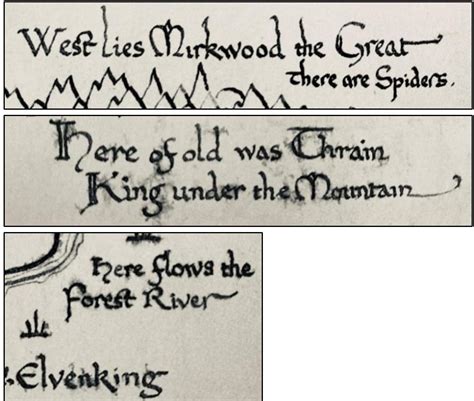 West lies Mirkwood the Great
there are Spiders.
Here of old was Thrain
King under the Mountain
here flows the
Forest River
Elvenking